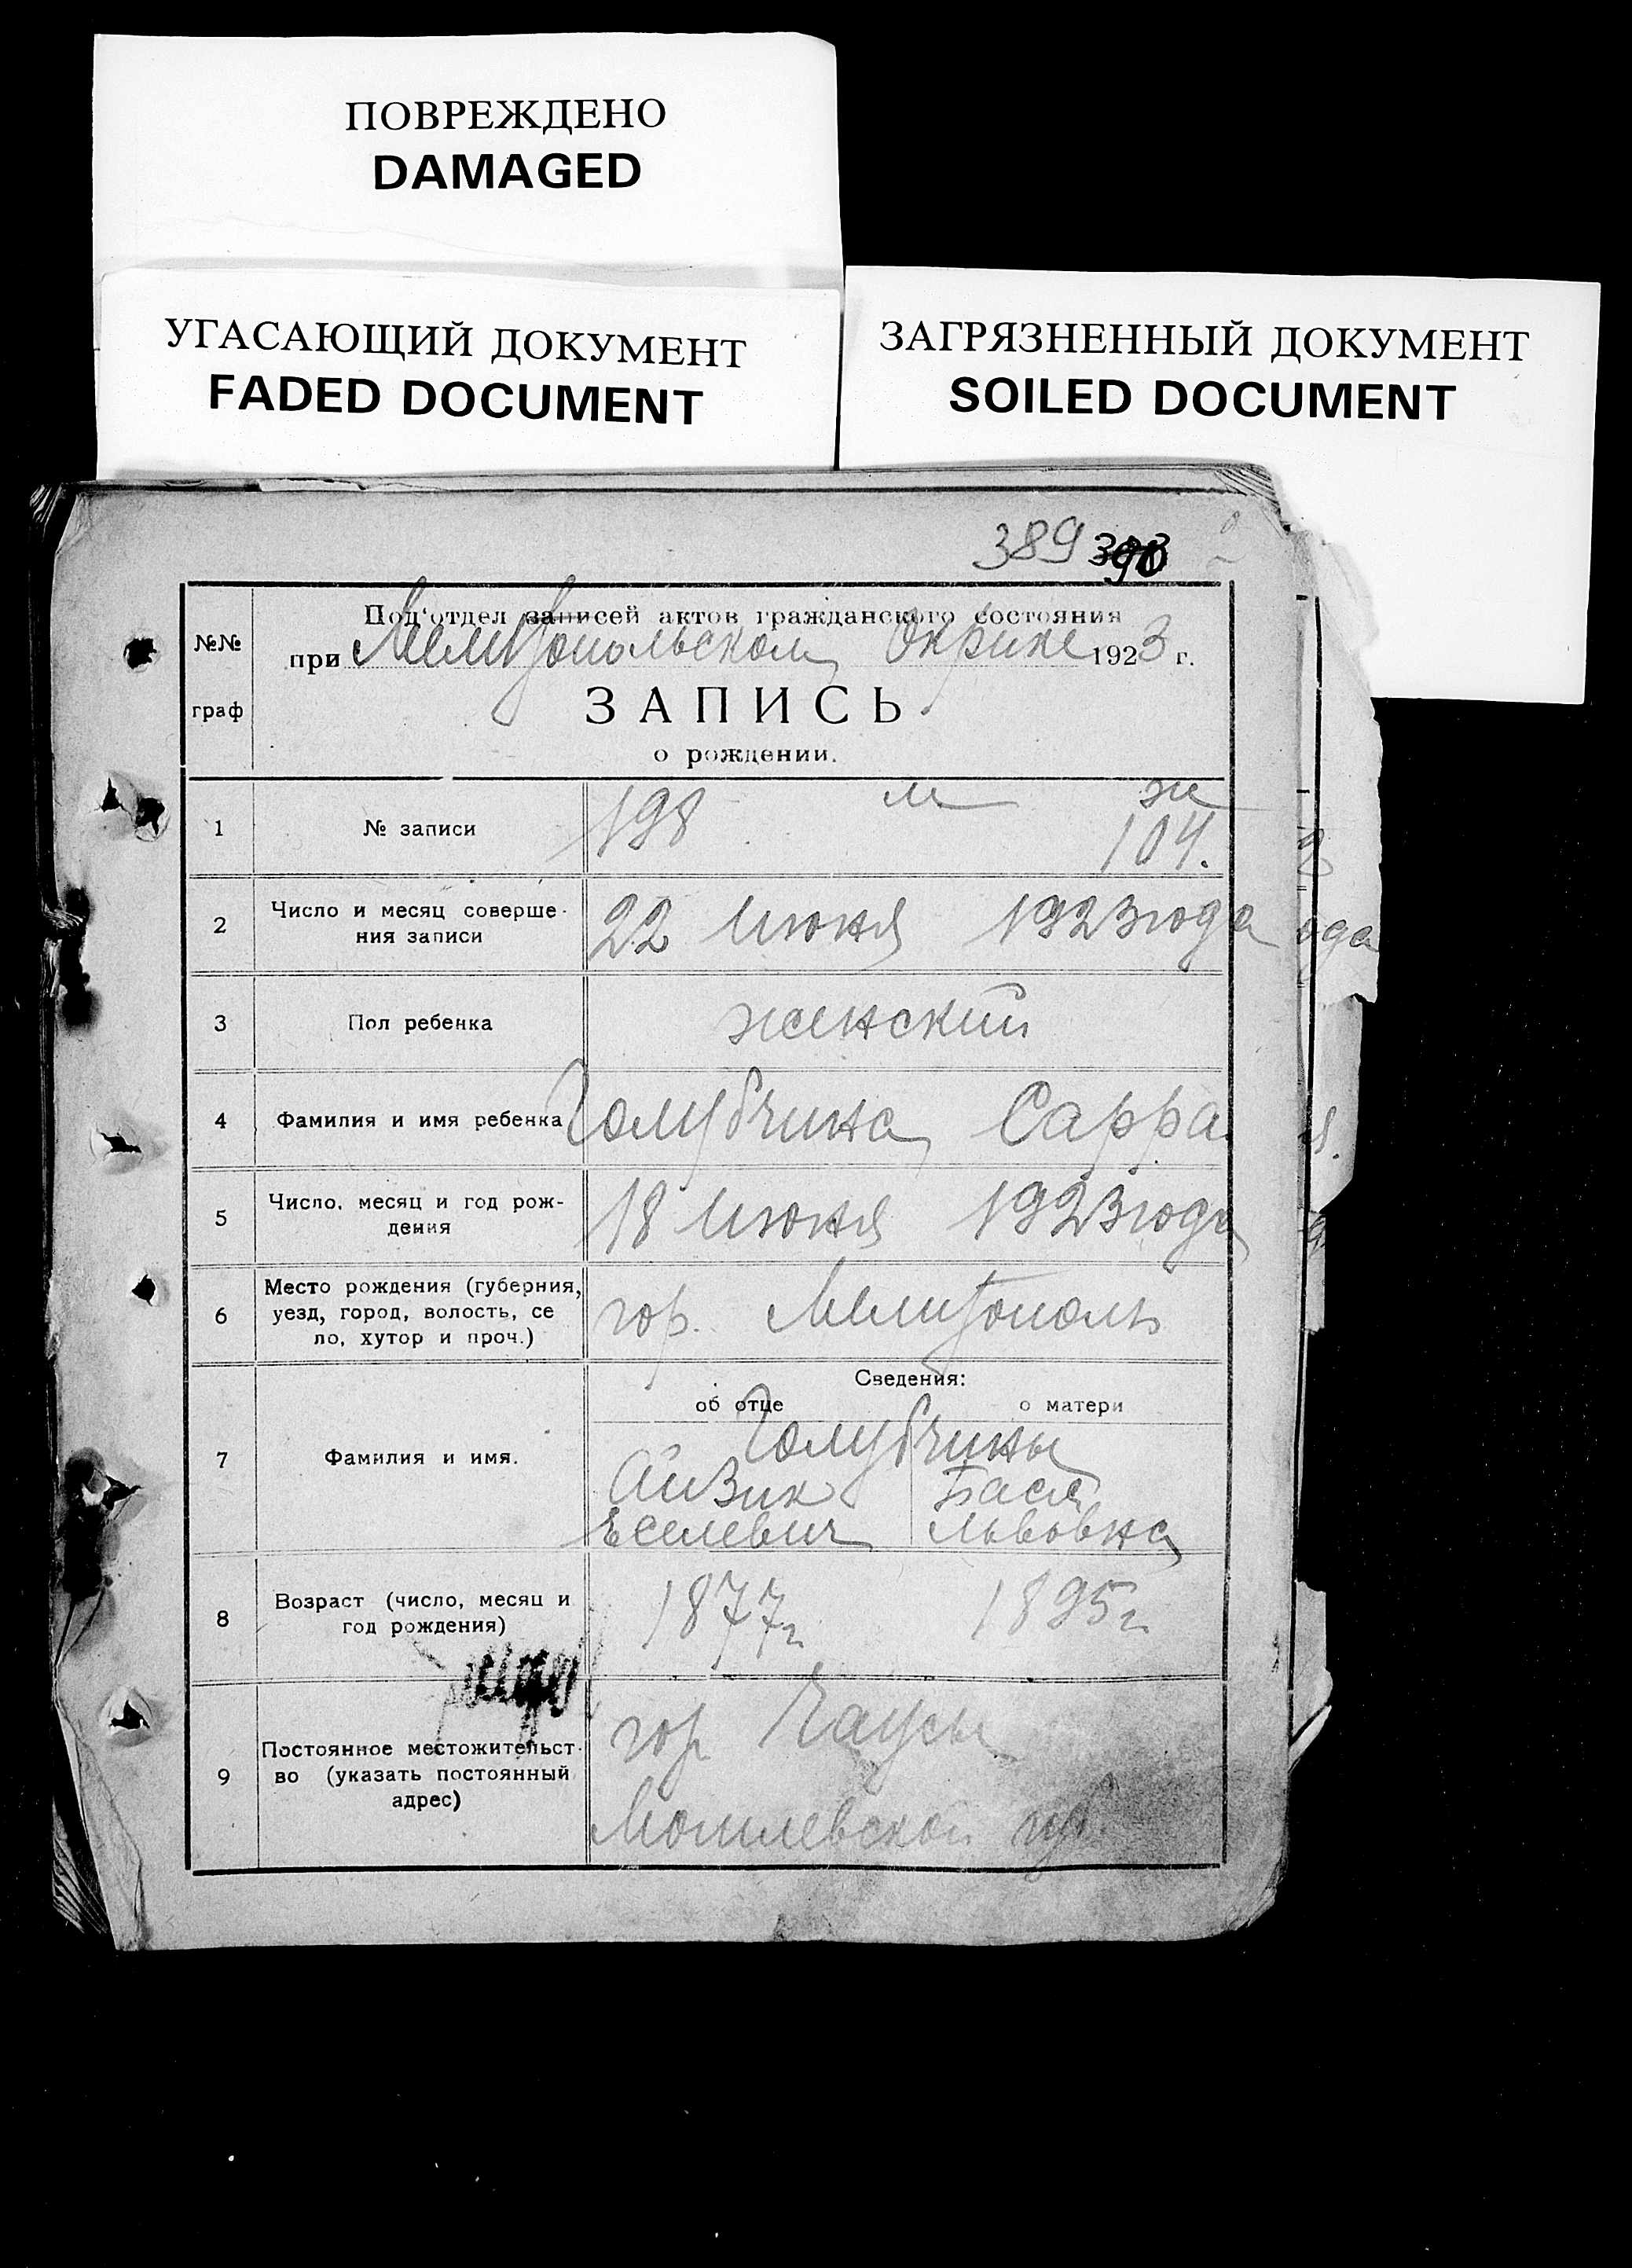 ПОВРЕЖДЕНО
DAMAGED
УГАСАЮЩИЙ ДОКУМЕНТ
FADED DOCUMENT
ЗАГРЯЗНЕННЫЙ ДОКУМЕНТ
SOILED DOCUMENT
389
№№
граф
Под'отдел записей актов гражданского состояния
при Мелитопольском Окрике 1923 г.
ЗАПИСЬ
о рождении.
1 № записи 198 м ж
104.
2 Число и месяц соверше-
ния записи 22 Июня 1923 года
3 Пол ребенка женский
4 Фамилия и имя ребенка Голубчина Сарра
5 Число, месяц и год рож-
дения 18 Июня 1923 года
6 Место рождения (губерния,
уезд, город, волость, се
ло, хутор и проч.) гор. Мелитополь
Сведения:
об отце о матери
7 Фамилия и имя. Голубчины
Айзик Бася
Еселевич Львовна
8 Возраст (число, месяц и
год рождения) 1877 г 1895 г.
9 Постоянное местожительст-
во (указать постоянный
адрес) гор Чаусы
Могилевской губ.
ода